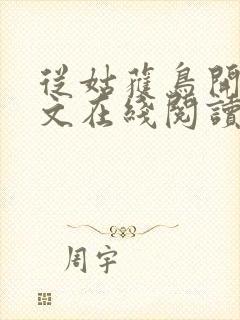 從姑蘿鳥開
文在綫閱讀
周宇